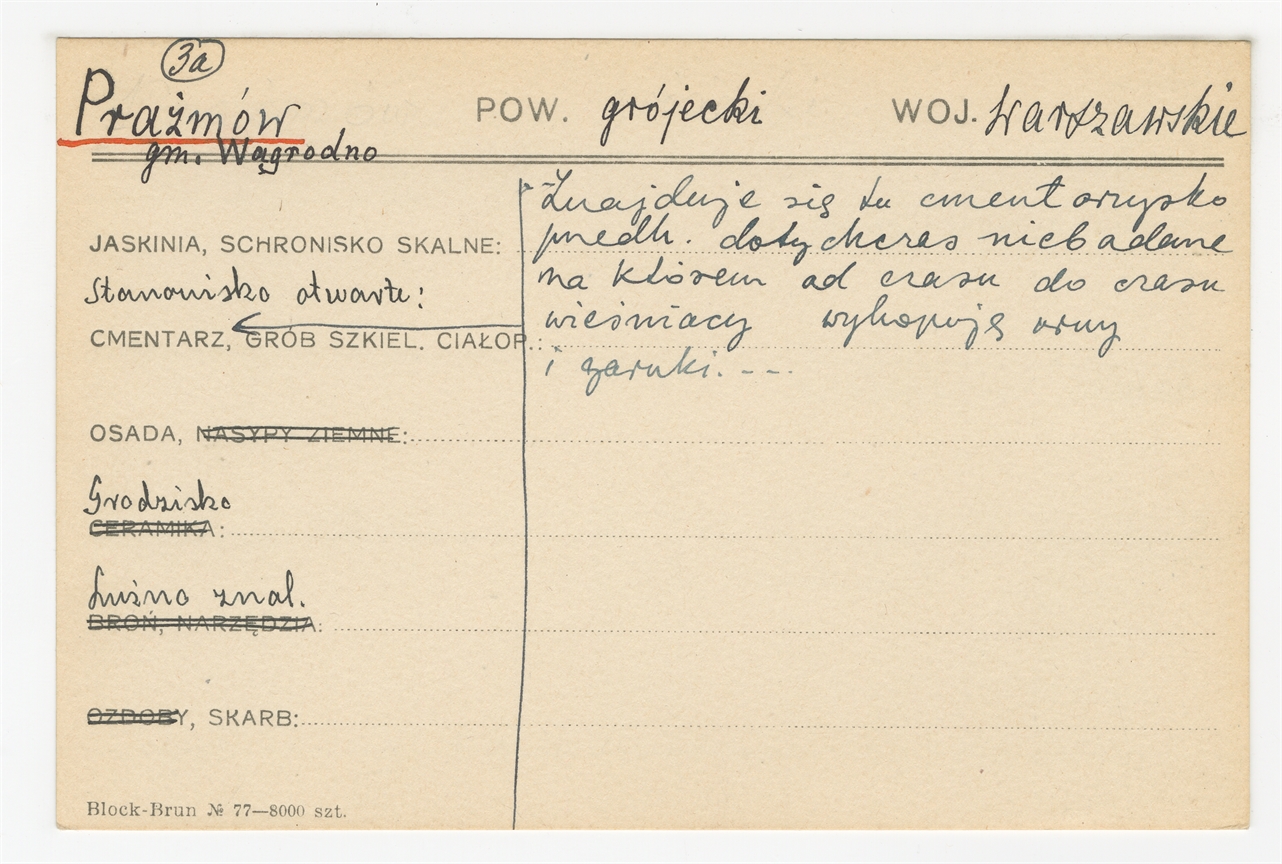 3a
Prażmów POW. grójecki WOJ. Warszawskie
gm. Wągrodno
Znajduje się tu cmentarzysko
JASKINIA, SCHRONISKO SKALNE:
przedh. dotychczas niebadane
Stanowisko otwarte:
na którem od czasu do czasu
wieśniacy wykopują urny
CMENTARZ, GRÓB SZKIEL. CIAŁOP.:
i garnki. ---
OSADA, NASYPY ZIEMNE:
Grodzisko
CERAMIKA:
Luźno znal.
BROŃ, NARZĘDZIA:
OZDOBY, SKARB:
Block-Brun № 77—8000 szt.